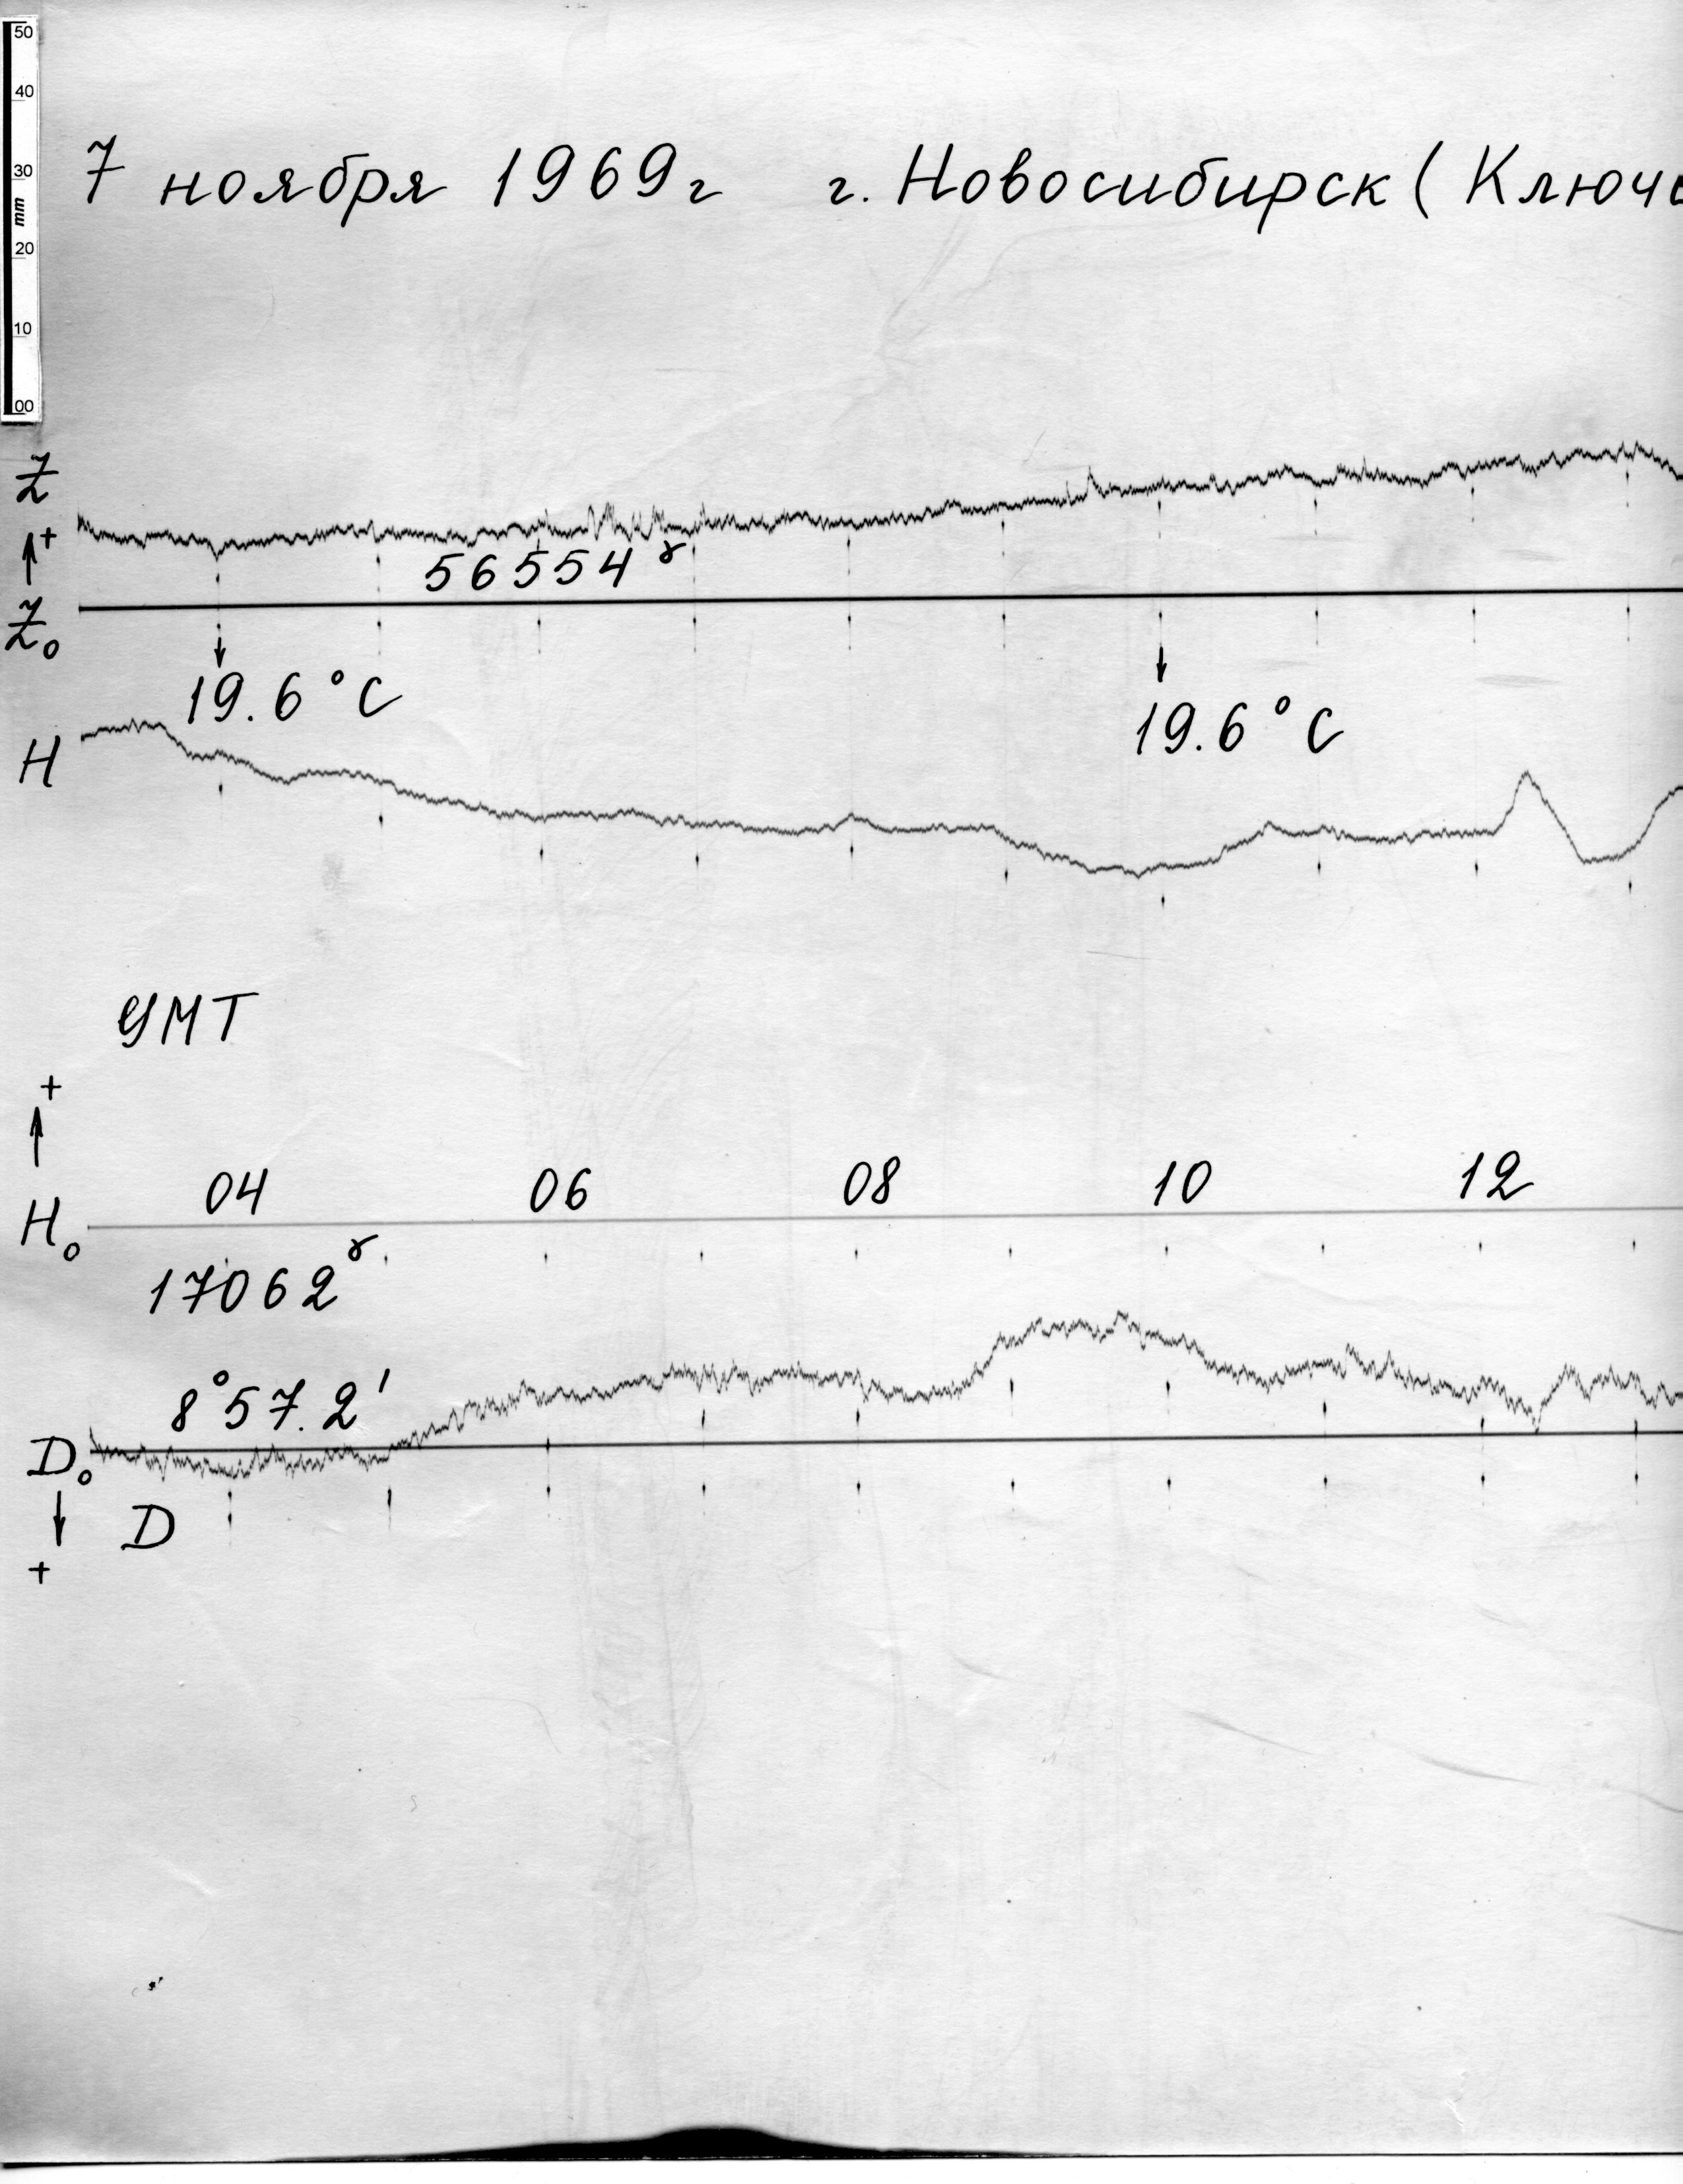 50
40
30
mm
20
10
00
7 ноября 1969г г. Новосибирск ( Ключе
Z
+
56554 γ
Z₀
19.6°C
19.6°C
H
УМТ
+
04 06 08 10 12
H₀
17062 γ
8°57.2'
D₀
D
+